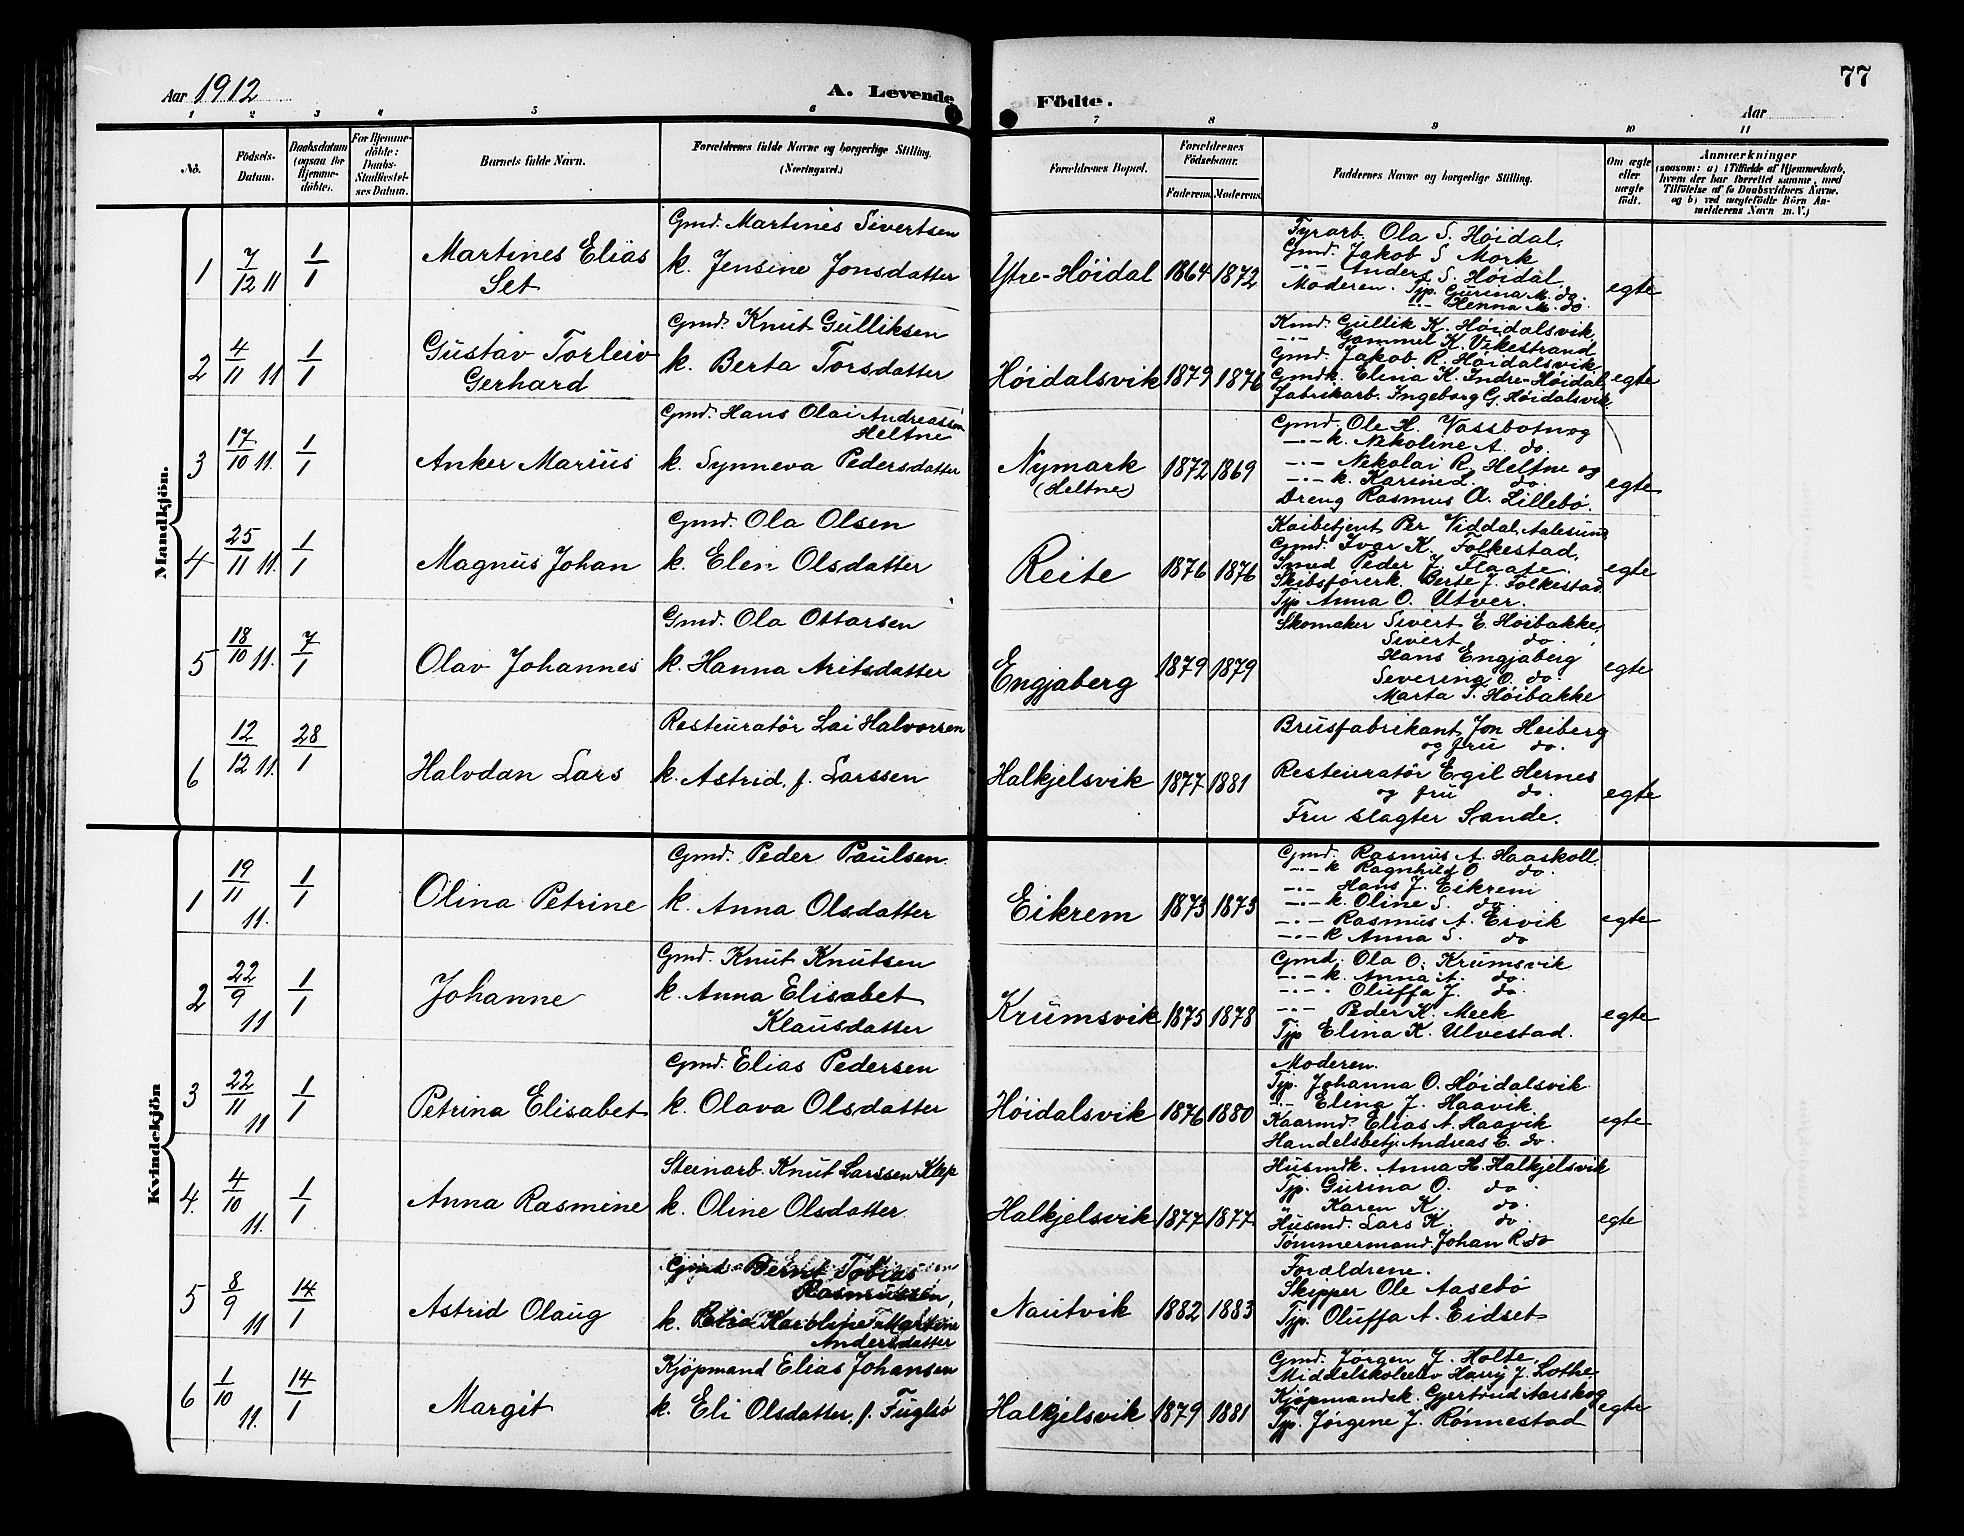 77
Aar 1912
A. Levende Födte.
Aar
1 2 3 4 5 6 7 8 9 10 11
No.
Födsels-Datum.
Daabsdatum (ogsaa for Hjemme-döbte).
For Hjemme-döbte: Daabs-Stadfæstel-ses Datum.
Barnets fulde Navn.
Forældrenes fulde Navne og borgerlige Stilling.
(Næringsvei.)
Forældrenes Bopæl.
Forældrenes Födselsaar.
Faderens. Moderens.
Faddernes Navne og borgerlige Stilling.
Om ægte eller uægte födt.
Anmærkninger
(saasom: a) i Tilfælde af Hjemmedaab, hvem der har forrettet samme, med Tilföielse af to Daabsvidners Navne, og b) ved uægtefödte Börn An-melderens Navn m. V.)
Mandkjön.
1 7/12 11 1/1
Martines Elias
Set
Gmd. Martines Sivertsen
k. Jensine Jonsdatter
Ytre-Höidal 1864 1872
Fyrarb. Ola S. Höidal,
Gmd. Jakob S Mork
-"- Anders S. Höidal
Moderen. Tjp. Gurina M. do.
-"- Henna M. do
egte
2 4/11 11 1/1
Gustav Torleiv
Gerhard
Gmd. Knut Gulliksen
k. Berta Torsdatter
Höidalsvik 1879 1876
Kmd. Gullik K. Höidalsvik,
-"- Gammel K. Vikestrand
Gmd. Jakob R. Höidalsvik
Gmdk. Elina K. Indre-Höidal,
Fabrikarb. Ingeborg G. Höidalsvik.
egte
3 17/10 11. 1/1
Anker Marius
Gmd. Hans Olai Andreassen
Heltne
k. Synneva Pedersdatter
Nymark
(Heltne)
1872 1869
Gmd. Ole H. Vassbotn og
-"- k. Nekoline A. do.
-"- Nekolai R. Heltne og
-"- k. Karine L. do.
Dreng Rasmus O. Lillebö.
egte
4 25/11 11. 1/1
Magnus Johan
Gmd. Ola Olsen
k. Elen Olsdatter
Reite 1876 1876
Kaibetjent Per Viddal, Aalesund
Gmd. Ivar K. Folkestad,
Smed Peder J. Flaate.
Skibsförerk. Berte J. Folkestad.
Tjp Anna O. Utver.
egte
5 18/10 11. 7/1
Olav Johannes
Gmd. Ola Ottarsen
k. Hanna Aritsdatter
Engjaberg 1879 1879
Skomaker Sivert E. Höibakke,
Sivert do.
Hans Engjaberg
Severina O. do.
Marta S. Höibakke
egte
6 12/12 11. 28/1
Halvdan Lars
Restauratör Lai Halvorsen
k. Astrid, f. Larssen
Halkjelsvik 1877 1881
Brusfabrikant Jon Heiberg
og fru do.
Restauratör Egil Hernes
og fru do.
Fru slagter Sande.
egte
Kvindekjön
1 19/11 11. 1/1
Olina Petrine
Gmd. Peder Paulsen
k. Anna Olsdatter
Eikrem 1873 1873
Gmd. Rasmus A. Haaskoll
-"- k Ragnhild O do.
-"- Hans J. Eikrem
-"- k. Oline S. do.
-"- Rasmus A. Ervik
-"- k Anna S. do
egte
2 22/9 11 1/1
Johanne
Gmd. Knut Knutsen
k. Anna Elisabet
Klausdatter
Krumsvik 1875 1878
Gmd. Ola O. Krumsvik
-"- k. Anna A. do.
-"- Oluffa J. do.
-"- Peder K. Meek
Tjp Elina K. Ulvestad.
egte
3 22/11 11 1/1
Petrina Elisabet
Gmd. Elias Pedersen
k. Olava Olsdatter
Höidalsvik 1876 1880
Moderen.
Tjp. Johanna O. Höidalsvik
-"- Elina J. Haavik
Kaarmd. Elias A. Haavik
Handelsbetj. Andreas E. do.
egte
4. 4/10 11. 1/1
Anna Rasmine
Steinarb. Knut Larssen Klep
k. Oline Olsdatter
Halkjelsvik 1877 1877
Husmdk. Anna H. Halkjelsvik
Tjp. Gurina O. do.
" Karen K. do.
Husmd. Lars K. do.
Tömmermand Johan R do
egte
5 8/9 11 14/1
Astrid Olaug
Gmd Bernt Tobias
Rasmussen,
k.
Andersdatter
Nautvik 1882 1883
Forældrene.
Skipper Ole Aasebö
Tjp. Oluffa A. Eidset
6 1/10 11. 14/1
Margit
Kjöpmand Elias Johansen
k. Eli Olsdatter, f. Fuglsö
Halkjelsvik 1879 1881
Gmd. Jörgen J. Holte,
Middelskoleelev J. Lothe
Kjöpmandsk. Gjertrud Aarskog
Tjp. Jörgine J. Rönnestad
egte